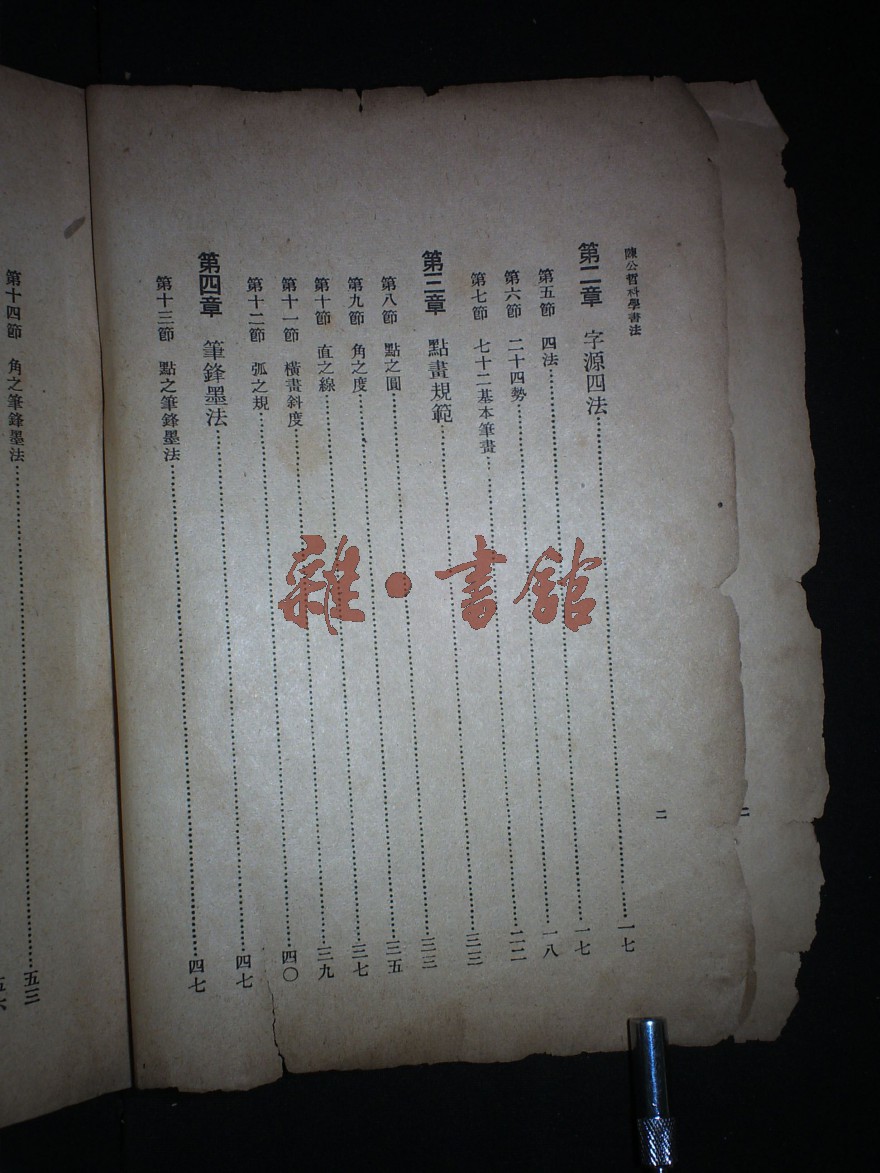 陳公哲科學書法
二
第二章 字源四法……一七
第五節 四法……一七
第六節 二十四勢……一八
第七節 七十二基本筆畫……二二
第三章 點畫規範……三三
第八節 點之圓……三三
第九節 角之度……三五
第十節 直之線……三七
第十一節 橫畫斜度……三九
第十二節 弧之規……四〇
第四章 筆鋒墨法……四七
第十三節 點之筆鋒墨法……四七
第十四節 角之筆鋒墨法……五三
雜·書館